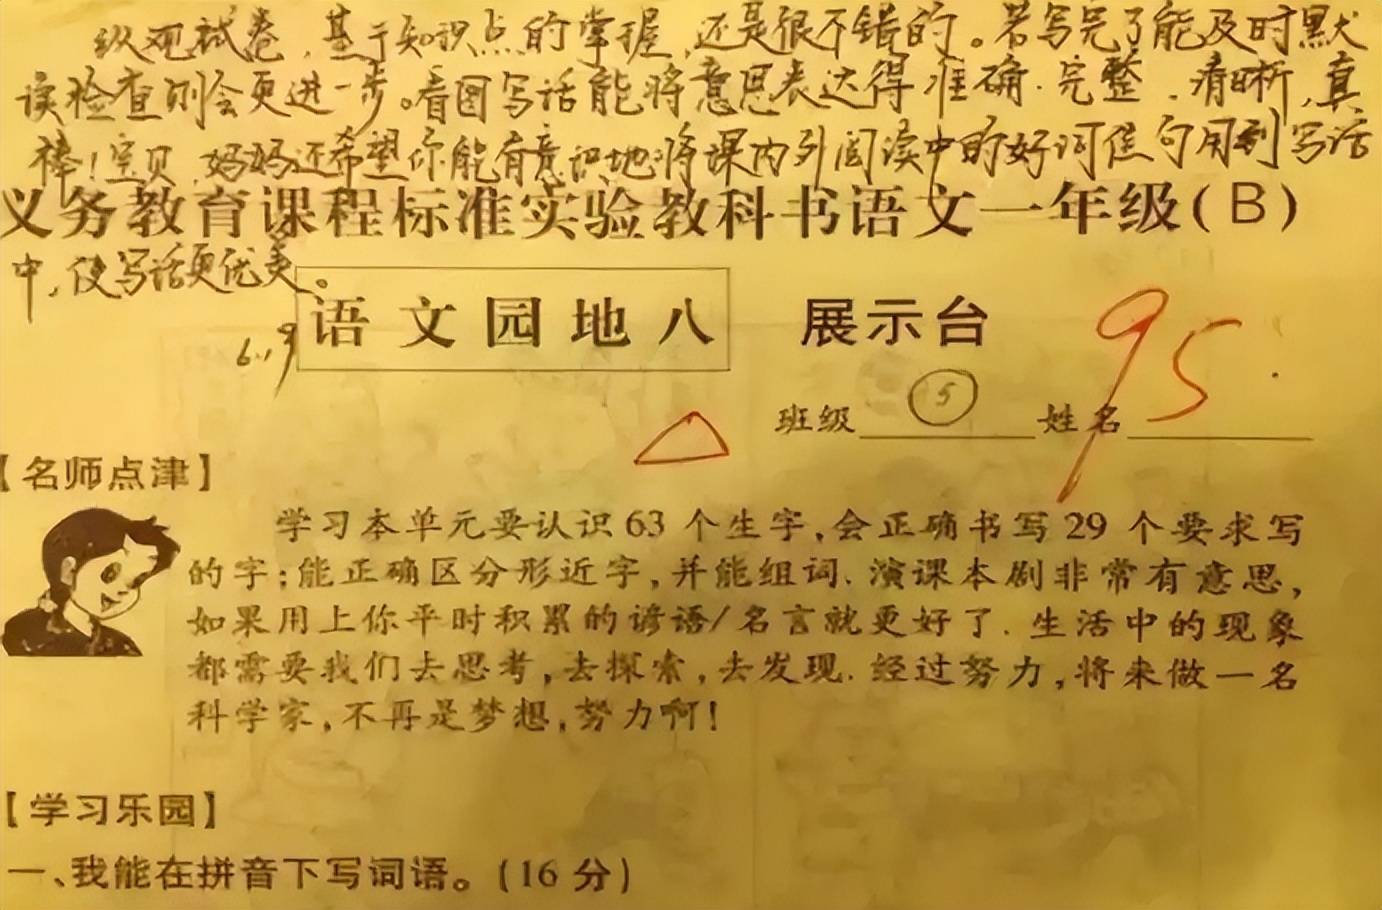 纵观试卷，基于知识点的掌握，还是很不错的。若写完了能及时默
读检查则会更进一步。看图写话能将意思表达得准确、完整、清晰，真
棒！宝贝，妈妈还希望你能有意识地将课内外阅读中的好词佳句用到写话
义务教育课程标准实验教科书语文一年级(B)
中，使写话更优美。
语文园地八 展示台
6.19
95
班级 5 姓名
【名师点津】
学习本单元要认识63个生字,会正确书写29个要求写
的字;能正确区分形近字,并能组词.演课本剧非常有意思,
如果用上你平时积累的谚语/名言就更好了.生活中的现象
都需要我们去思考,去探索,去发现.经过努力,将来做一名
科学家,不再是梦想,努力啊!
【学习乐园】
一、我能在拼音下写词语。(16分)